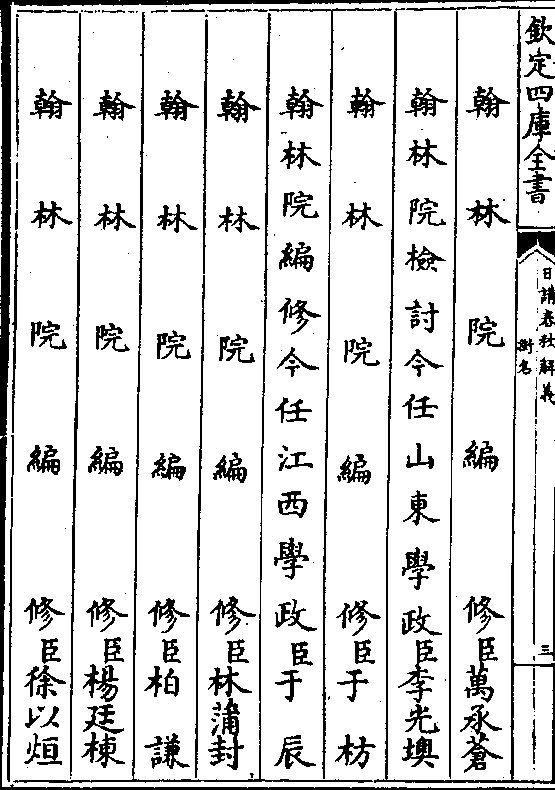 欽定四庫全書
日講春秋解義
銜名
三
翰林院編修臣萬承蒼
翰林院檢討今任山東學政臣李光墺
翰林院編修臣于枋
翰林院編修今任江西學政臣于辰
翰林院編修臣林蒲封
翰林院編修臣柏謙
翰林院編修臣楊廷棟
翰林院編修臣徐以烜